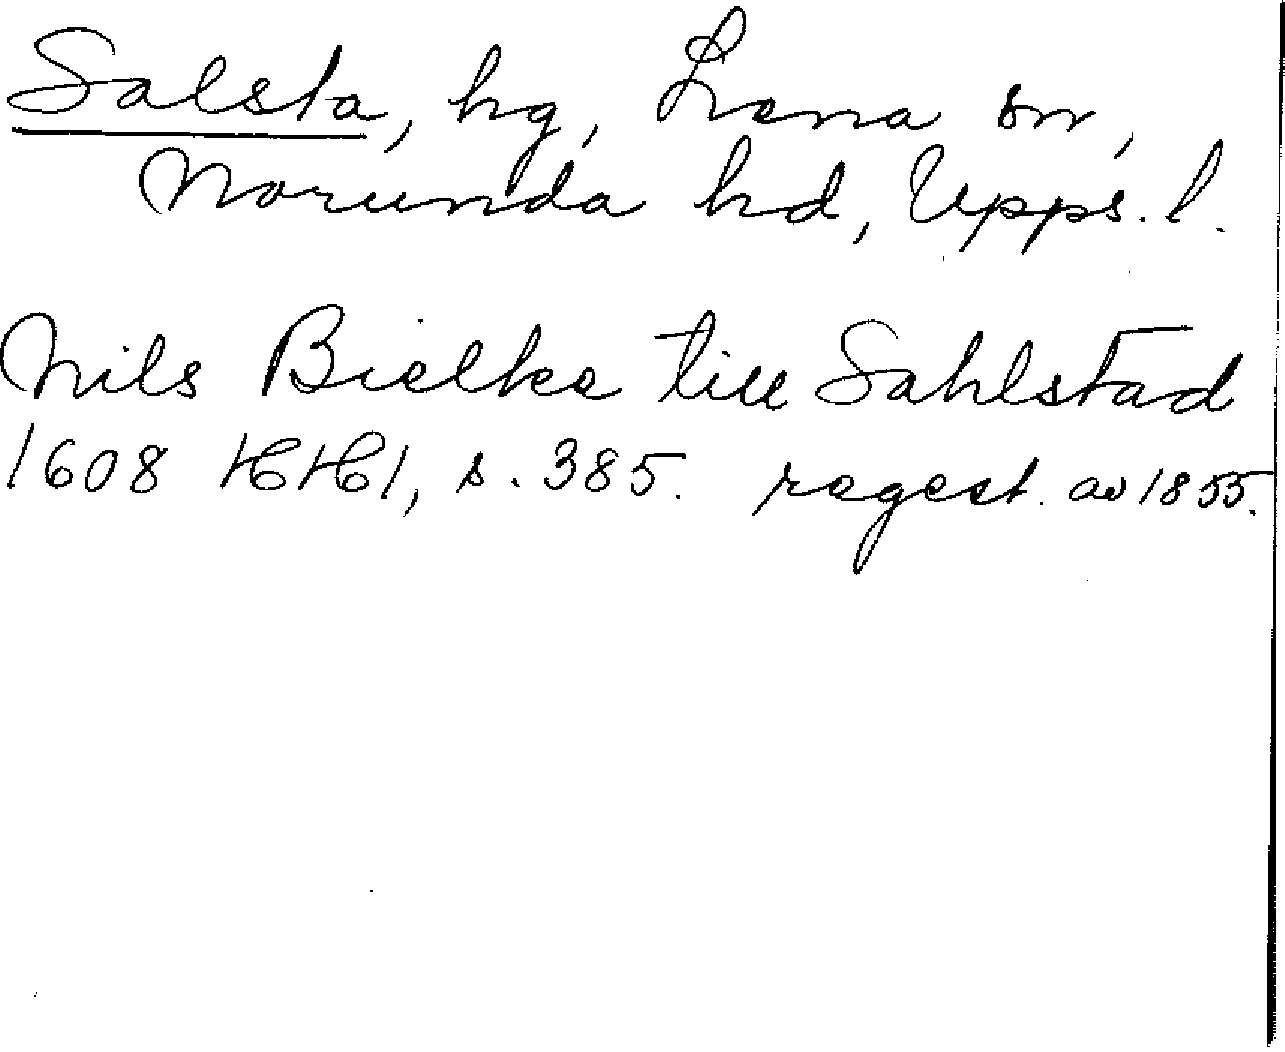 Salsta, hg, Lena sn,
Norunda hd, Upps. l.
Nils Bielke till Sahlstad
1608 HH1, s. 385. regest. av 1855.